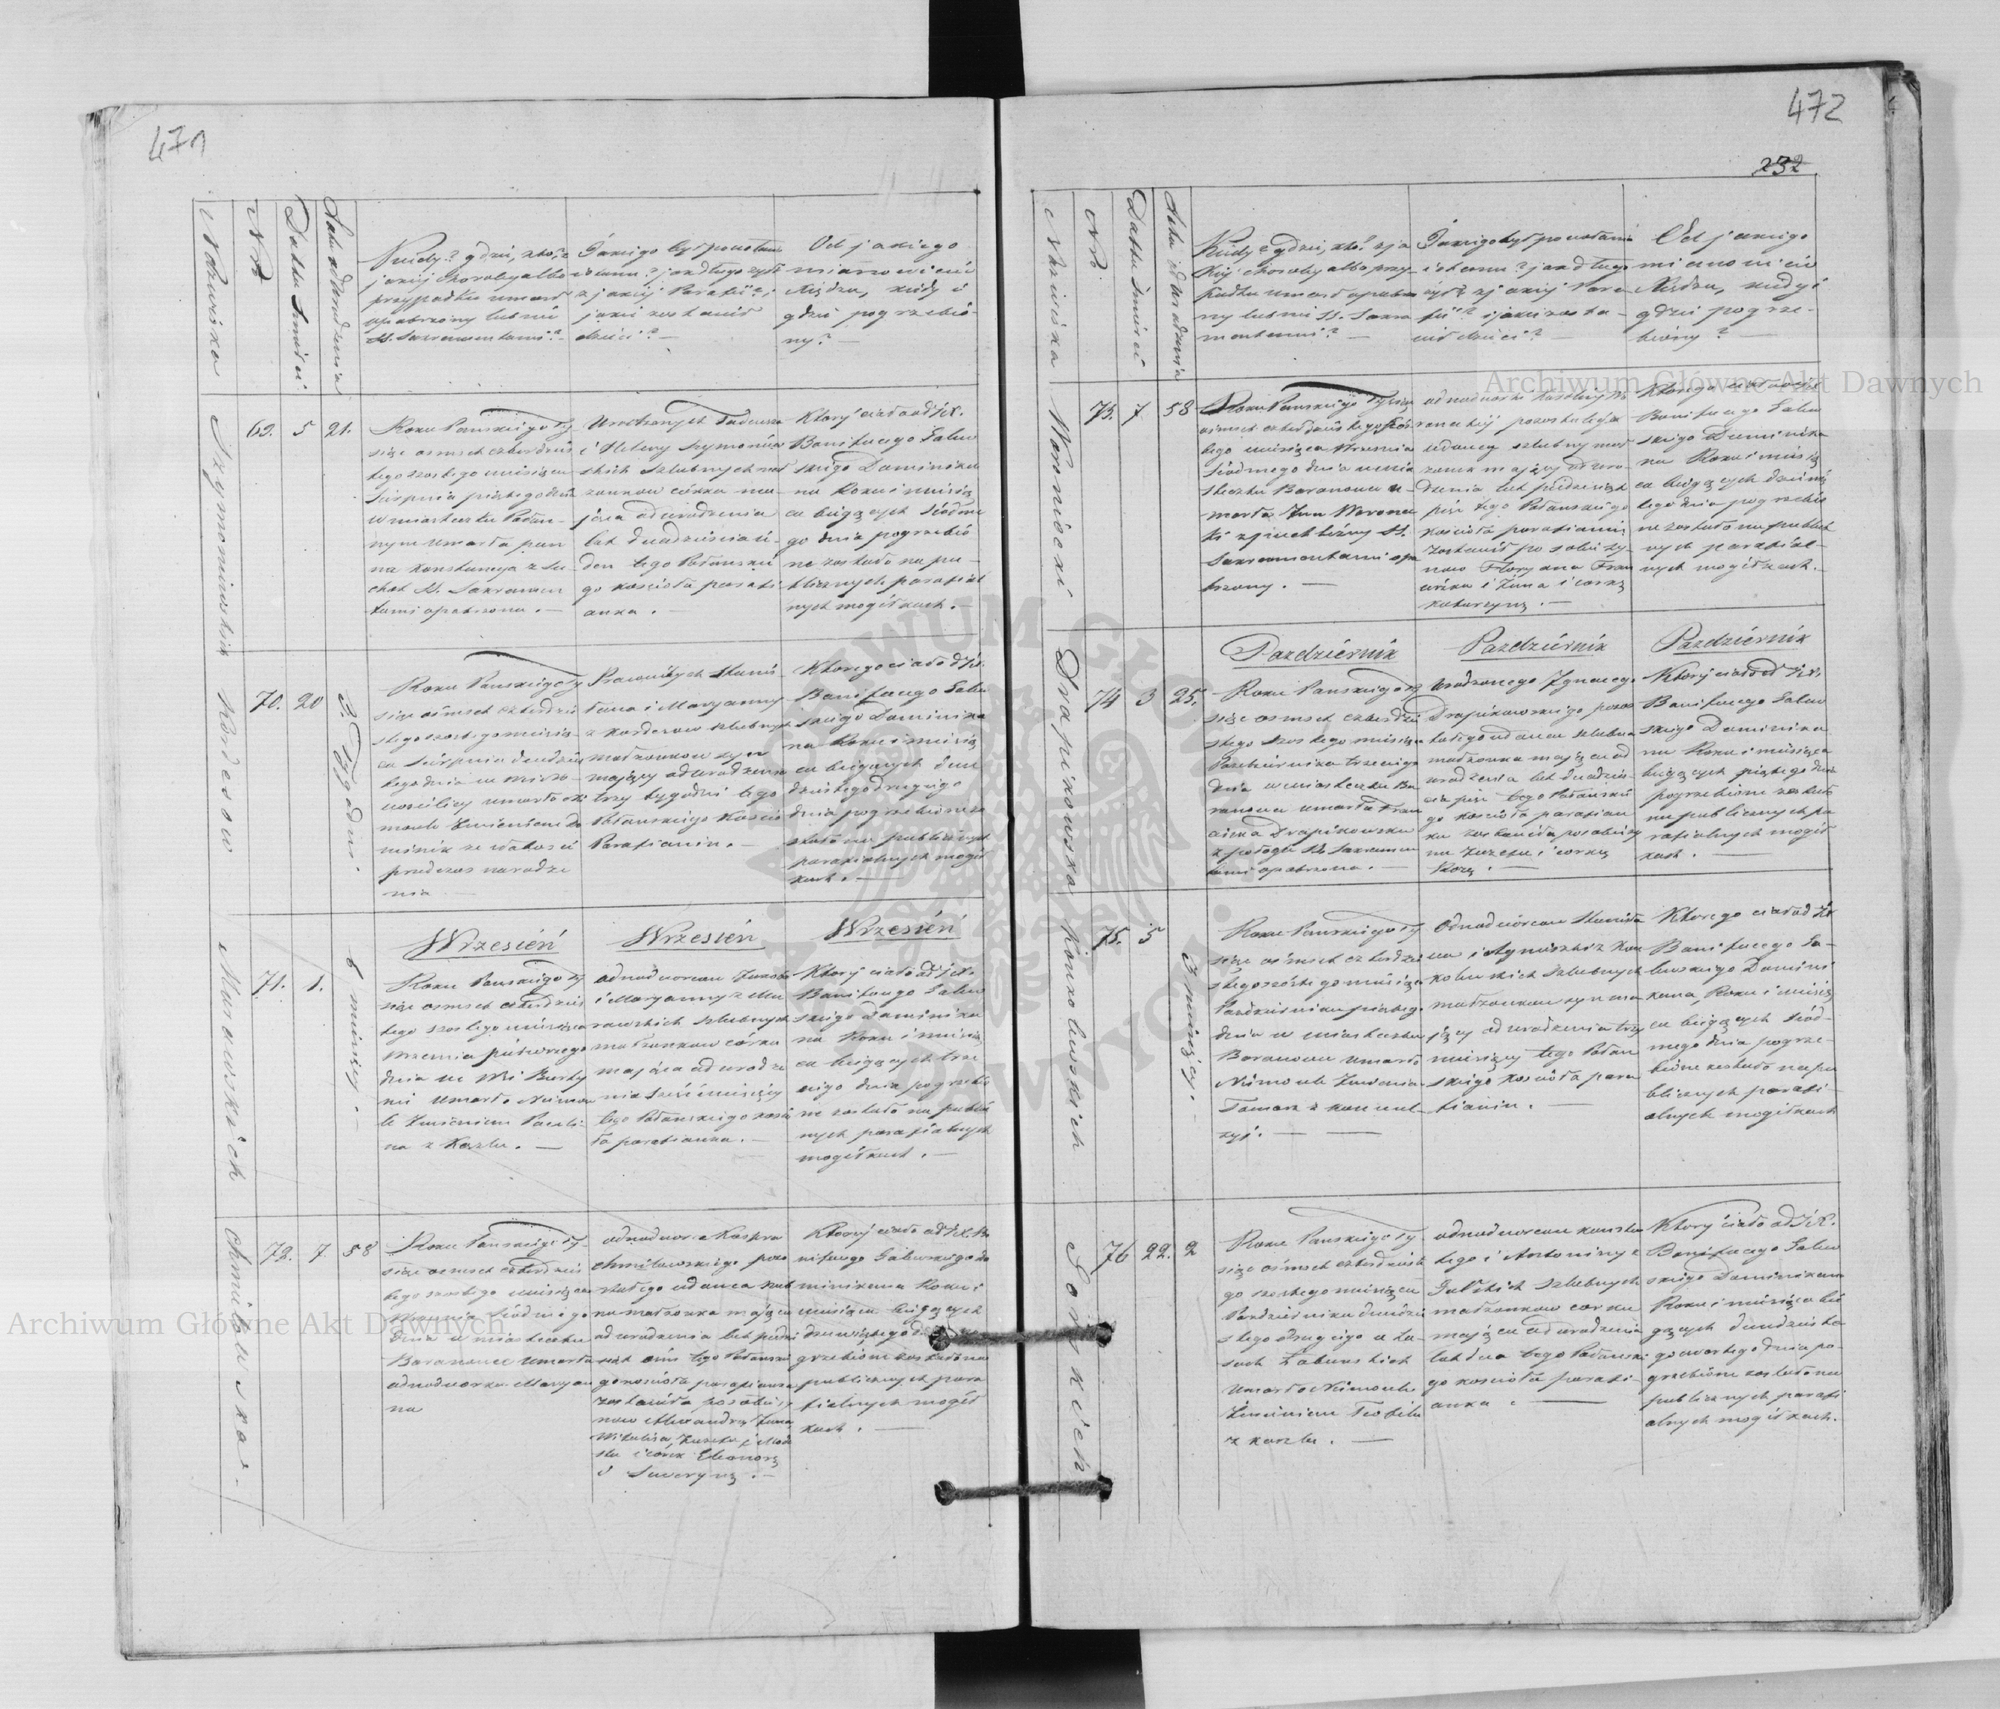 471
Nazwisko
Nro
Data Smierci
Lata od urodzenia
Kiedy? gdzie, kto? z
jakiej choroby albo
przypadku umarł
opatrzony lub nie
SS. Sakramentami? —
Jakiego był powołania
i stanu? jak długo żył?
z jakiej Parafii? i
jakie zostawił
dzieci? —
Od jakiego
mianowicie
Księdza, kiedy i
gdzie pogrzebio-
ny? —
Szymonowiczówna
69. 5 21.
Roku Pańskiego Ty-
siąc osmset czterdzies
tego szostego miesiąca
Sierpnia piątego dnia
w miasteczku Połon-
nym umarła pan
na Konstancya z su-
chot SS. Sakramen
tami opatrzona. —
Urodzonych Tadeusza
i Heleny
skich szlubnych mał
żonkow córka ma-
jąca od urodzenia
lat dwadzieścia je-
den tego Połańskie
go kościoła parafi
anka. —
Ktorej ciało od JX.
Bonifacego Zalew
skiego Dominika
na Roku i miesią
ca bieżących siodme
go dnia pogrzebio
ne zostało na pu-
blicznych parafial
nych mogiłkach. —
Kordesow
70. 20 3. Tygodni.
Roku Pańskiego Ty
siąc osmset czterdzie
stego szostego miesią-
ca Sierpnia dwudzies
tego dnia
umarło nie
mowle Imieniem Do
minik ze słabości
podczas narodze
nia —
Pracowitych Stanis
ława i Maryanny
z Kordesow szlubnych
małżonkow syn
mający od urodzenia
trzy tygodni tego
Połańskiego Kościoła
Parafianin. —
Ktorego ciało od JX.
Bonifacego Zalew
skiego Dominika
na Roku i miesią
ca bieżących dwu
dziestego drugiego
dnia pogrzebione zo
stało na publicznych
parafialnych mogił
kach. —
Murawskich
71. 1. 6 miesięcy. —
Wrzesień
Roku Pańskiego Ty
siąc osmset czterdzies
tego szostego miesiąca
Wrzesnia pierwszego
dnia we Wsi
umarło Niemow
le Imieniem Pauli
na z Kaszlu. —
Wrzesień
odnodworcow Jakoba
i Maryanny z Mu
rawskich szlubnych
małżonkow córka
mająca od urodze
nia sześć miesięcy
tego Połańskiego kościo
ła parafianka. —
Wrzesień
Ktorej ciało od JX.
Bonifacego Zalew
skiego Dominika
na Roku i miesią
ca bieżących trze
ciego dnia pogrzebio
ne zostało na publicz
nych parafialnych
mogiłkach. —
Chmielowska. —
72. 7. 58
Roku Pańskiego Ty-
siąc osmset czterdzies
tego szostego miesiąca
Wrzesnia siódmego
dnia w miasteczku
Baranowce umarła
odnodworka Maryan
na
odnodworca Kaspra
Chmielowskiego pozo
stałego wdowca szlub
na małżonka mająca
od urodzenia lat pięć
dziesiąt ośm tego Połański
go kościoła parafianka
zostawiła po sobie sy
now Alexandra, Jana
Witalisa, Jozefa,
i córek Eleonorę
i Seweryną. —
Ktorej ciało od JX. Bo
nifacego Zalewskiego Do
minikana Roku i
miesiąca bieżących
dziewiątego dnia po
grzebione zostało na
publicznych para
fialnych mogił
kach. —
472
232
Nazwiska
Nro.
Data Smierci
Lata od urodzenia
Kiedy? gdzie, kto? z ja
kiej choroby albo przy-
padku umarł opatrzo
ny lub nie SS. Sakra
mentami? —
Jakiego był powołania
i stanu? jak długo
żył? z jakiej Para
fii? i jakie zosta-
wił dzieci? —
Od jakiego
mianowicie
Księdza, kiedy i
gdzie pogrze-
biony? —
Woroniecki
73. 7. 58
Roku Pańskiego Tysiąc
osmset czterdziestego szos
tego miesiąca Wrzesnia
siodmego dnia w mia
steczku Baranowce u-
marł Jan Woroniec
ki z puchlizny SS.
Sakramentami opa
trzony. —
odnodworki
pozostałej
wdowy szlubny mał
żonek mający od uro-
dzenia lat piędziesiąt
ośm tego Połańskiego
kościoła parafianin
zostawił po sobie sy-
now Floryana Fran
ciszka i Jana i corką
Katarzyną. —
Ktorego ciało od JX.
Bonifacego Zalew
skiego Dominika
na Roku i miesią
ca bieżących dziewią
tego dnia pogrzebio
ne zostało na publicz
nych parafial-
nych mogiłkach. —
Drapikowska
74 3 25.
Pazdziérnik
Roku Pańskiego Ty
siąc osmset czterdzie
stego szostego miesiąca
Pazdziernika trzeciego
dnia w miasteczku Ba
ranowce umarła Fran
ciszka Drapikowska
z połogu SS. Sakramen
tami opatrzona. —
Pazdziérnik
Urodzonego Ignacego
Drapikowskiego pozos
tałego wdowca szlubna
małżonka mająca od
urodzenia lat dwadzie-
ścia pięć tego Połański
go kościoła parafian
ka zostawiła po sobie sy
na Jozefa i corką
Rozą. —
Pazdziérnik
Ktorej ciało od JX.
Bonifacego Zalew
skiego Dominika
na Roku i miesiąca
bieżących piątego dnia
pogrzebione zostało
na publicznych pa
rafialnych mogił
kach. —
Konkolewskich
75. 5 3 miesięcy. —
Roku Pańskiego Ty
siąc osmset czterdzie
stego szóstego miesiąca
Pazdziernika piątego
dnia w miasteczku
Baranowce umarło
Niemowle Imieniem
Tomasz z konwul
zyi. — —
Odnodworcow Stanisła
wa i Agnieszki z Kon
kolewskich szlubnych
małżonkow syn ma
jący od urodzenia trzy
miesięcy tego Połań
skiego kościoła para
fianin. —
Ktorego ciało od JX
Bonifacego Za-
lewskiego Domini
kana, Roku i miesią
ca bieżących siód-
mego dnia pogrze-
bione zostało na pu
blicznych parafi-
alnych mogiłkach
76 22. 2
Roku Pańskiego Ty-
siąc osmset czterdzieste
go szostego miesiąca
Pazdziernika dwudzie
stego drugiego w La-
sach Łabunskich
umarło Niemowle
Imieniem Teofila
z kaszlu. —
odnodworcow Konstan
tego i Antoniny z
szlubnych
małżonkow corka
mająca od urodzenia
lat dwa tego Połański
go kościoła parafi-
anka. —
Ktorej ciało od JX.
Bonifacego Zalew
skiego Dominikana
Roku i miesiąca bie
żących dwudzieste
go czwartego dnia po-
grzebione zostało na
publicznych parafi
alnych mogiłkach.
Archiwum Główne Akt Dawnych
Archiwum Główne Akt Dawnych
ARCHIWUM GŁÓWNE AKT DAWNYCH